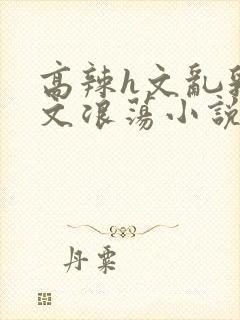 高辣h文亂
文浪蕩小說
丹粟